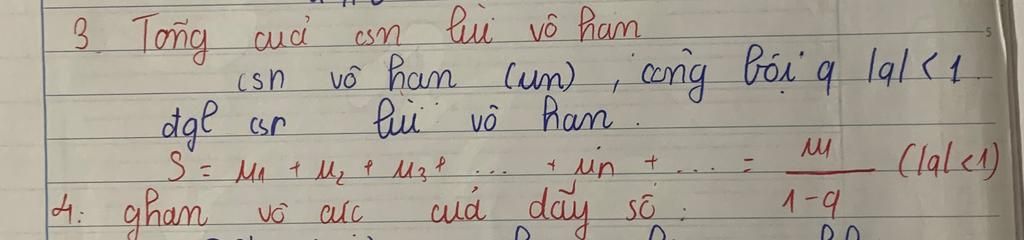 3 Tổng của csn lùi vô hạn
csn vô hạn (un) , công bội q |q| < 1
đgl csn lùi vô hạn.
S = u1 + u2 + u3 + ... + un + ... = u1 / 1-q (|q| < 1)
4: ghạn vô cực của dãy số: